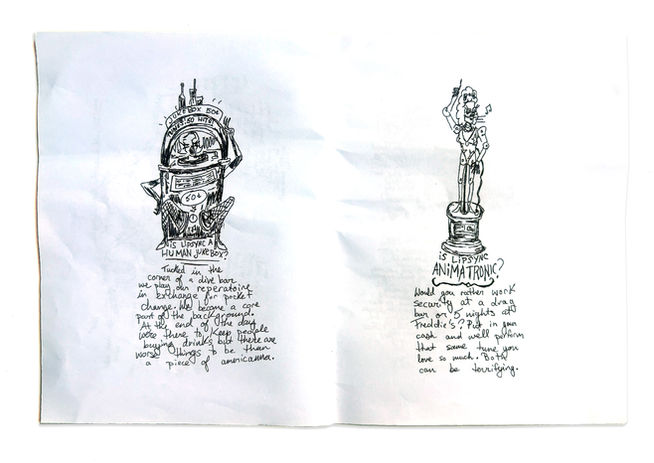 JUKEBOX 50¢
50¢
IS LIPSYNC A
HUMAN JUKEBOX?
Tucked in the
corner of a dive bar
we play our reperatoire
in exchange for pocket
change. We become a core
part of the background.
At the end of the day
were there to keep people
buying drinks but there are
worse things to be than
a piece of americanna.
IS LIPSYNC
ANIMATRONIC?
Would you rather work
security at a drag
bar or 5 nights at
Freddie's? Put in your
cash and we'll perform
that same tune you
love so much. Both
can be terrifying.